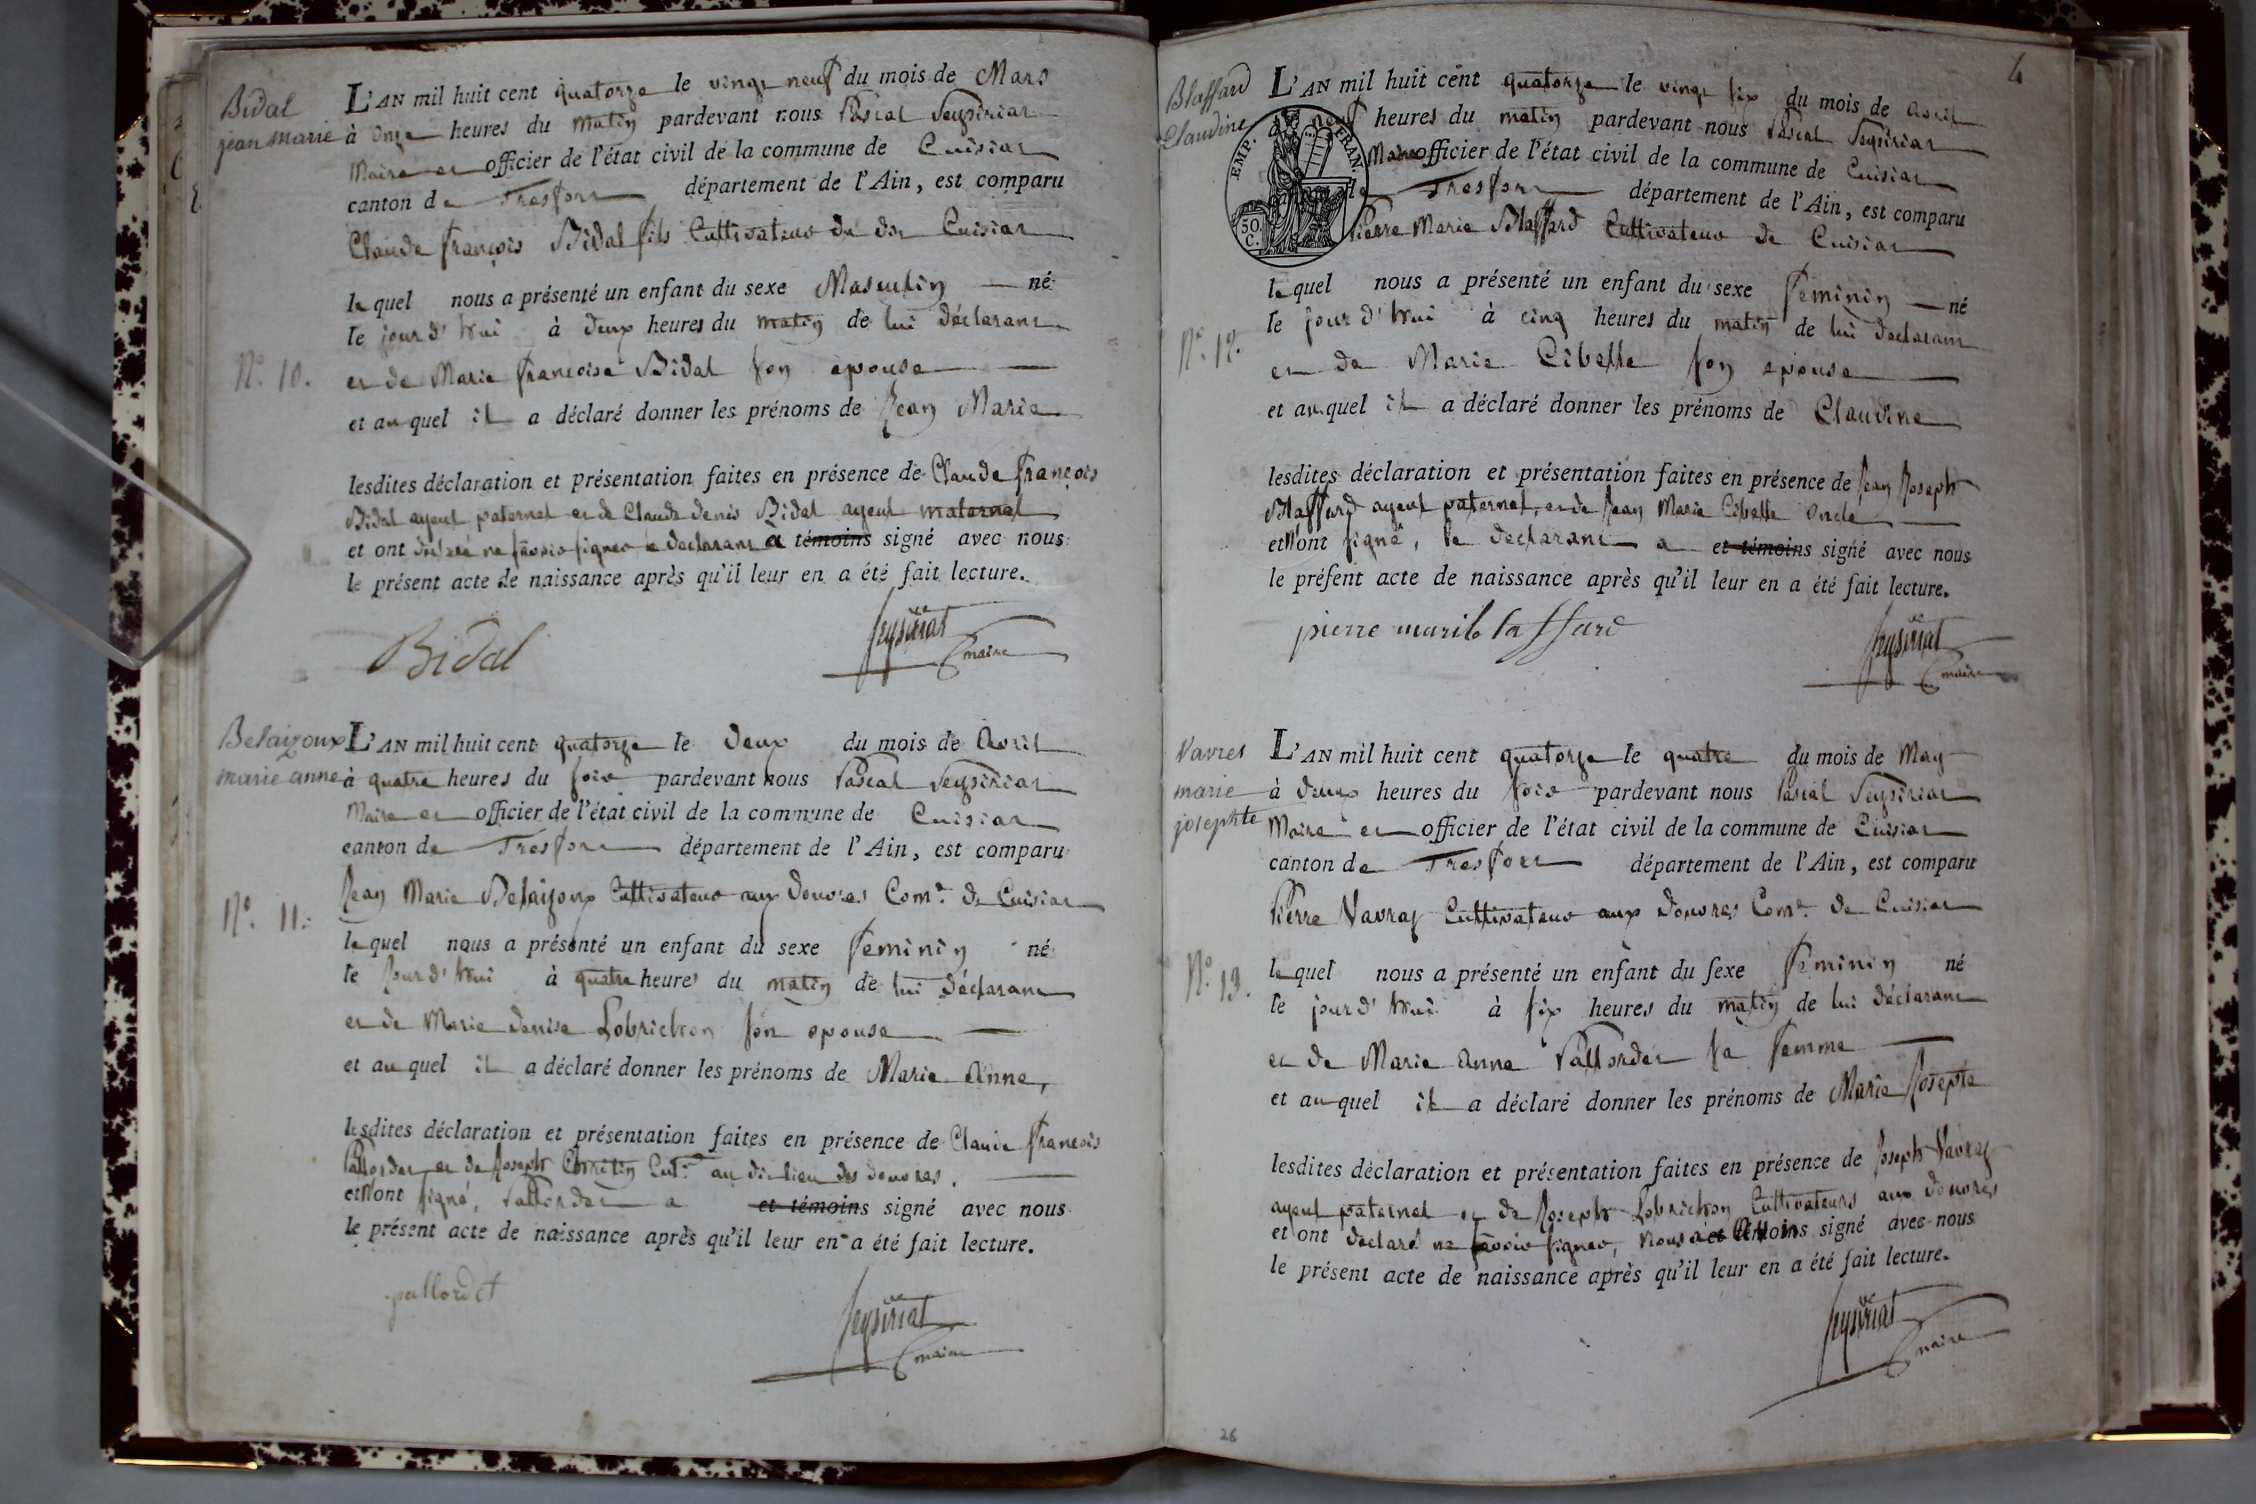 Bidal
jean marie
N.º 10.
L'AN mil huit cent quatorze le vingt neuf du mois de Mars
à onze heures du matin pardevant nous Pascal Seysiriat
Maire et officier de l'état civil de la commune de Cuisiat
canton de Tresfort département de l'Ain, est comparu
Claude françois Bidal fils Cultivateur du dit Cuisiat
lequel nous a présenté un enfant du sexe Masculin né
le jour d'hui à deux heures du matin de lui déclarant
et de Marie françoise Bidal son épouse
et auquel il a déclaré donner les prénoms de Jean Marie
lesdites déclaration et présentation faites en présence de Claude françois
Bidal ayeul paternel et de Claude denis Bidal ayeul maternel
et ont déclaré ne savoir signer le déclarant a témoins signé avec nous
le présent acte de naissance après qu'il leur en a été fait lecture.
Bidal
Seysiriat
maire
Belaizoux
marie anne
N.º 11.
L'AN mil huit cent quatorze le deux du mois de Avril
à quatre heures du soir pardevant nous Pascal Seysiriat
Maire et officier de l'état civil de la commune de Cuisiat
canton de Tresfort département de l'Ain, est comparu
Jean Marie Belaizoux Cultivateur aux douvres Com.e de Cuisiat
lequel nous a présenté un enfant du sexe feminin né
le jour d'hui à quatre heures du matin de lui déclarant
et de Marie denise Lobrichon son epouse
et auquel il a déclaré donner les prénoms de Marie Anne,
lesdites déclaration et présentation faites en présence de Claude françois
Pallordet et de Joseph Chritin Cult.r au dit lieu des douvres.
et n'ont signé, Pallordet a et témoins signé avec nous
le présent acte de naissance après qu'il leur en a été fait lecture.
pallordet
Seysiriat
maire
4
Blaffard
Claudine
N.º 12.
EMP. FRAN.
50 C.
L'AN mil huit cent quatorze le vingt six du mois de avril
à neuf heures du matin pardevant nous Pascal Seysiriat
Maire officier de l'état civil de la commune de Cuisiat
canton de Tresfort département de l'Ain, est comparu
Pierre Marie Blaffard Cultivateur de Cuisiat
lequel nous a présenté un enfant du sexe feminin né
le jour d'hui à cinq heures du matin de lui déclarant
et de Marie Cibelle son epouse
et auquel il a déclaré donner les prénoms de Claudine
lesdites déclaration et présentation faites en présence de Jean Joseph
Blaffard ayeul paternel, et de Jean Marie Cibelle oncle
et n'ont signé, le déclarant a et témoins signé avec nous
le présent acte de naissance après qu'il leur en a été fait lecture.
pierre marie blaffard
Seysiriat
maire
Vavres
marie
josephte
N.º 13.
L'AN mil huit cent quatorze le quatre du mois de May
à deux heures du soir pardevant nous Pascal Seysiriat
Maire et officier de l'état civil de la commune de Cuisiat
canton de Tresfort département de l'Ain, est comparu
Pierre Vavray Cultivateur aux douvres Com.e de Cuisiat
lequel nous a présenté un enfant du sexe feminin né
le jour d'hui à six heures du matin de lui déclarant
et de Marie Anne Pallordet sa femme
et auquel il a déclaré donner les prénoms de Marie Josephte
lesdites déclaration et présentation faites en présence de Joseph Vavray
ayeul paternel et de Joseph Lobrichon Cultivateurs aux douvres
et ont déclaré ne savoir signer, nous et témoins signé avec nous
le présent acte de naissance après qu'il leur en a été fait lecture.
Seysiriat
maire
26